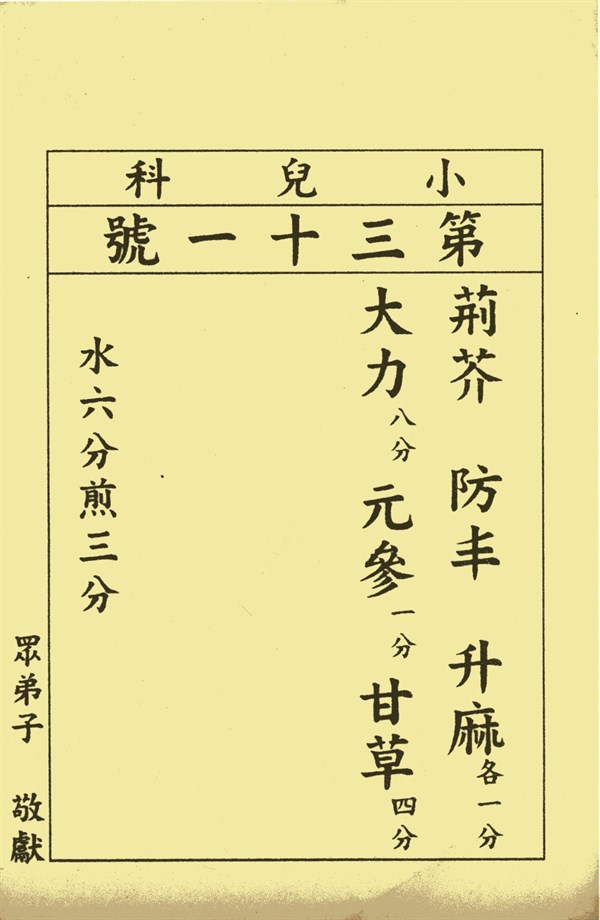 小兒科
第三十一號
荊芥 防丰 升麻各一分
大力八分 元參一分 甘草四分
水六分煎三分
眾弟子 敬獻